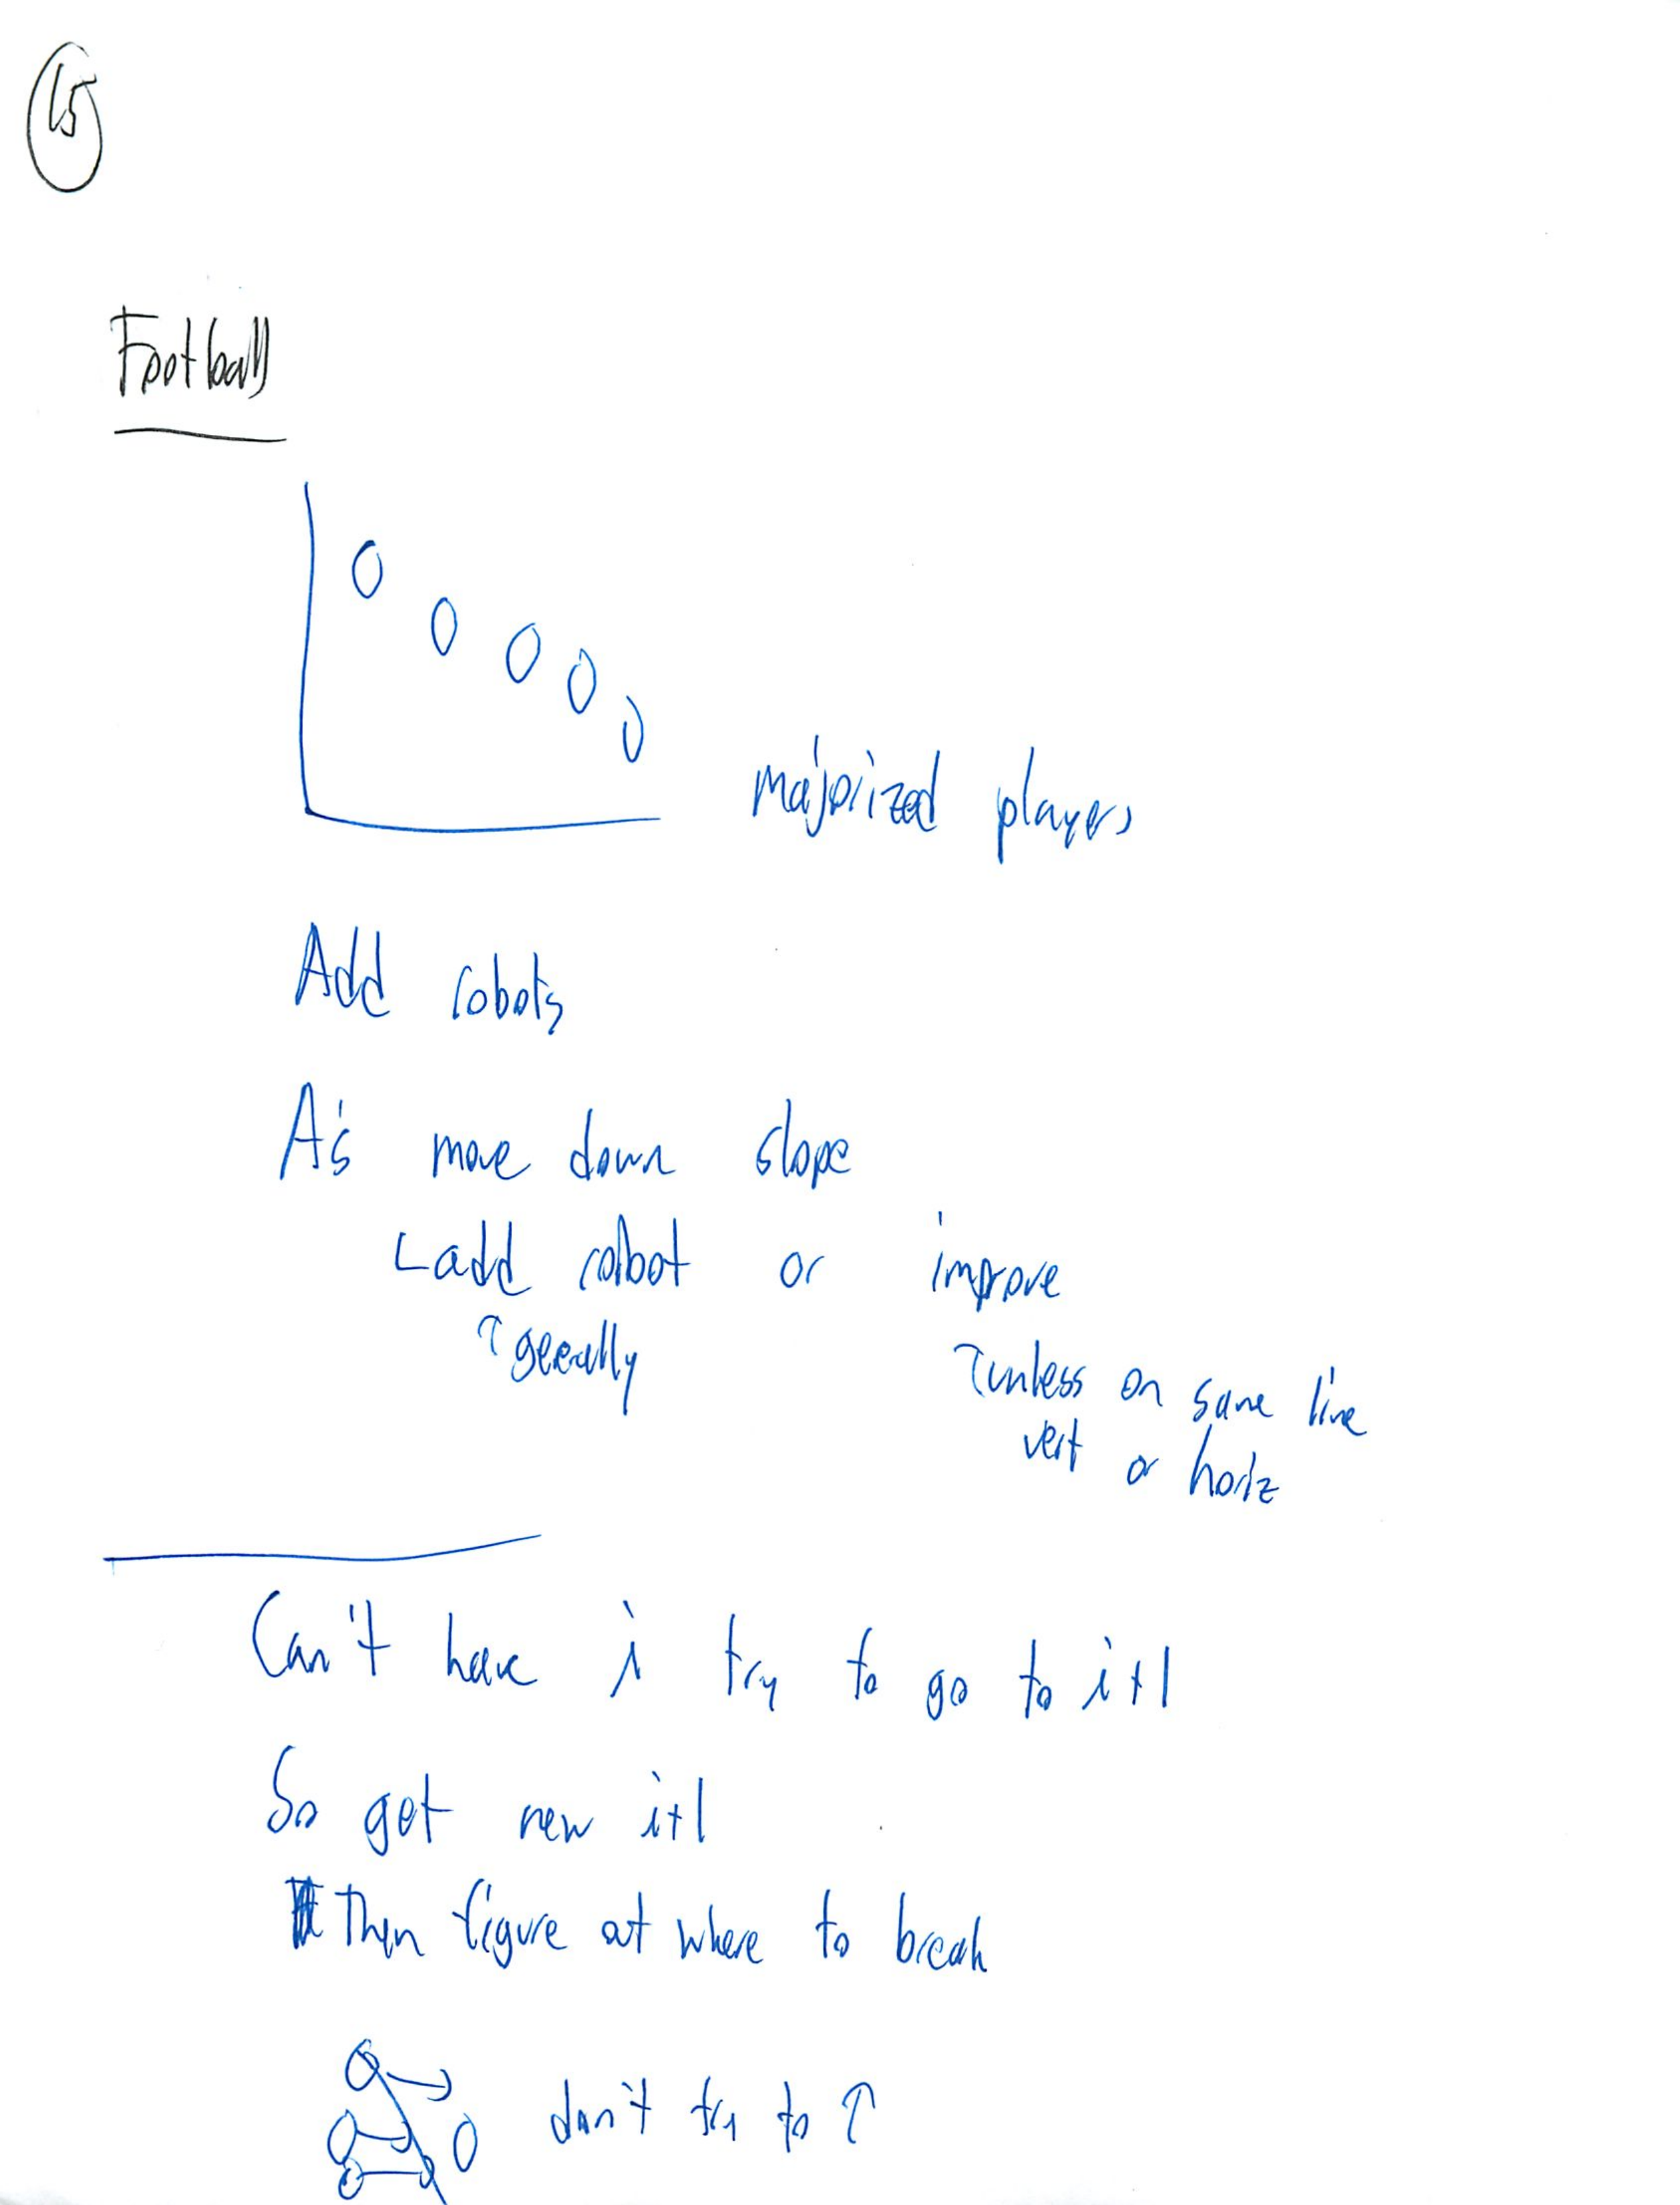 15
Football
majorized players
Add robots
As move down slope
add robot or improve
↑ generally
↑ unless on same line
vert or horiz
Can't have i try to go to i+1
So get new i+1
Then figure out where to break
don't try to ↑